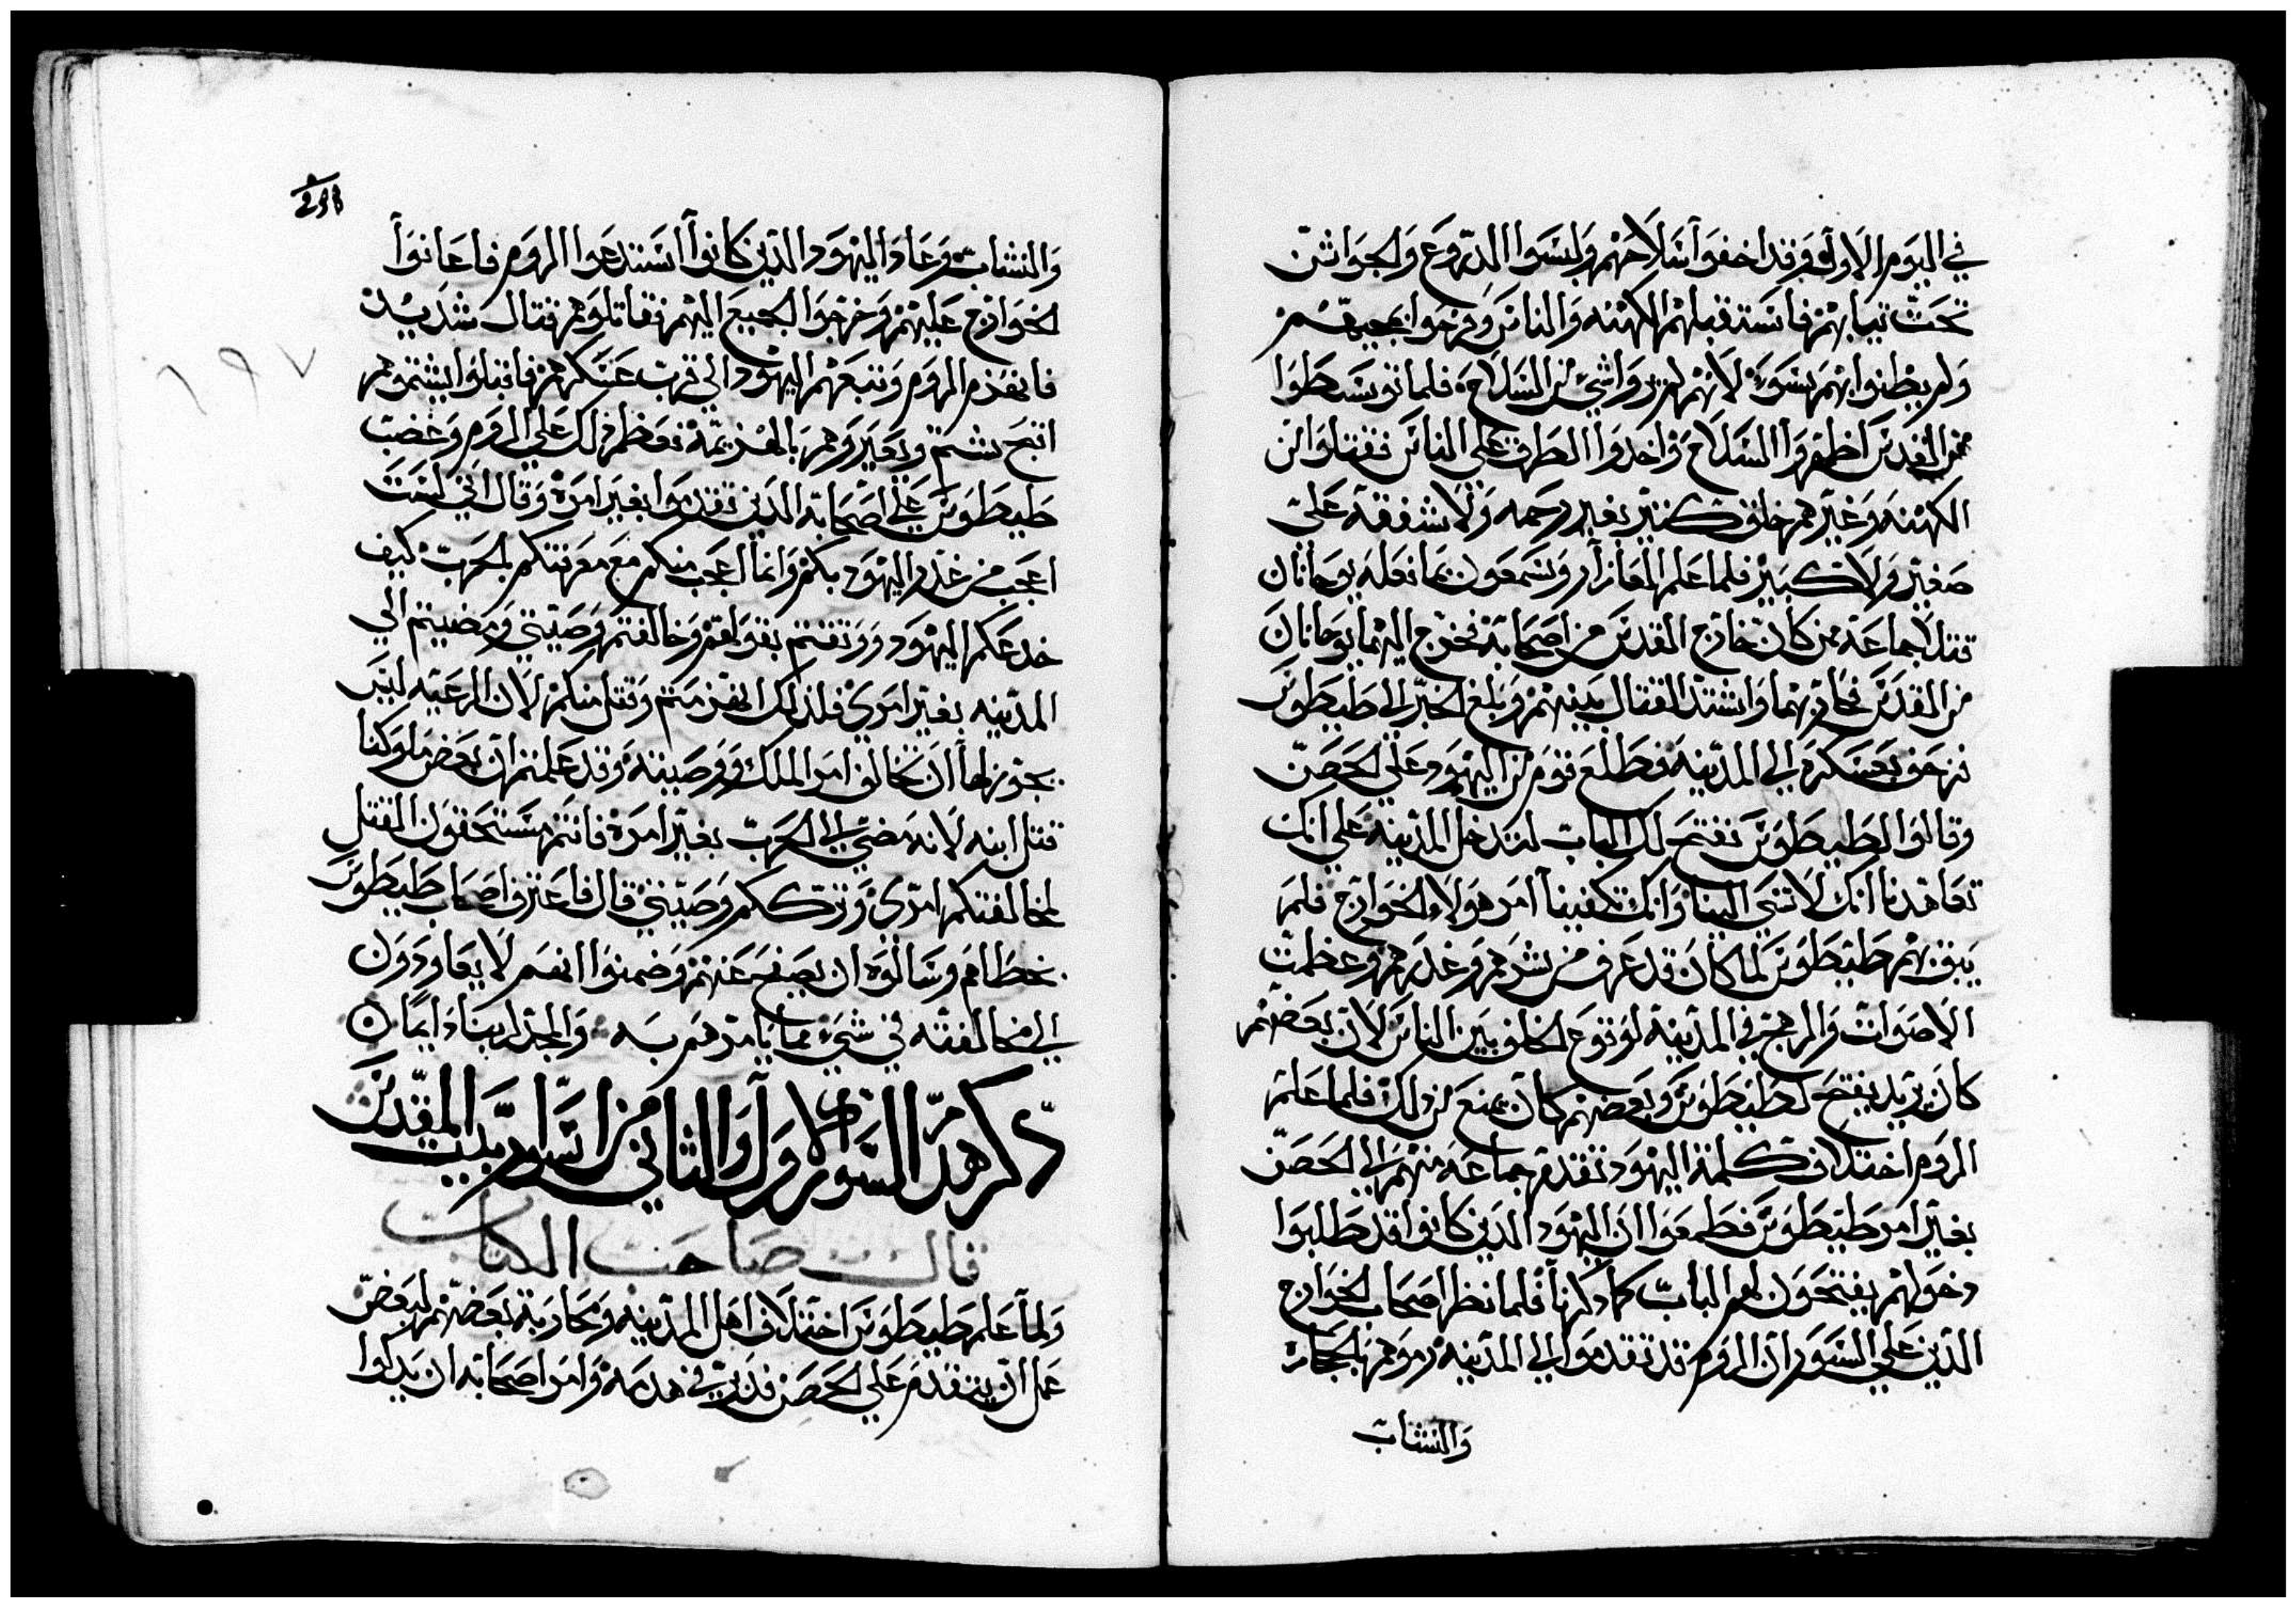 في اليوم الاول وقد اخفوا سلاحهم ولبسوا الدروع والجواشن
تحت تيابهم فاستقبلهم الكهنه والناس وفرحوا بمجيهم
ولم يظنوا بهم بسوء لانهم لم يروا شي من السلاح فلما توسطوا
من القدس اظهروا السلاح واخدوا الطرق علي الناس فقتلوا من
الكهنه وغيرهم خلق كتير بغير رحمه ولا شفقه على
صغير ولا كبير فلما علم العازار وشمعون بما فعله يوحانان
قتلا جماعة ممن كان خارج القدس من اصحابه فخرج اليهما يوحانان
من القدس فحاربهما واشتد القتال بينهم وبلغ الخبر الى طيطوس
فزحف بعسكره الي المدينه فطلع قوم من اليهود علي الحصن
وقالوا لطيطوس نفتح لك الباب لتدخل المدينه علي انك
تعاهدنا انك لا تسي الينا وانك تكفينا امر هولا الخوارج فلم
يتق بهم طيطوس لما كان قد عرف من شرهم وغدرهم وعظمت
الاصوات والرهج في المدينه لوقوع الخلف بين الناس لان بعضهم
كان يريد يفتح لطيطوس وبعضهم كان يمنع من ذلك فلما علم
الروم اختلاف كلمة اليهود تقدم جماعه منهم الى الحصن
بغير امر طيطوس فطمعوا ان اليهود الدين كانوا قد طلبوا
دخولهم يفتحون لهم الباب كما دكرنا فلما نظر اصحاب الخوارج
الدين علي السور ان الروم قد تقدموا الي المدينه رموهم بالحجاره
والنشاب
والنشاب وعاد اليهود الدين كانوا استدعوا الروم فاعانوا
الخوارج عليهم وخرجوا الجميع اليهم فقاتلوهم قتال شديد
فانهزم الروم وتبعهم اليهود الي قرب عسكرهم فاقبلوا يشتموهم
اقبح شتم ويعيروهم بالهزيمة فعظم ذلك علي الروم وغضب
طيطوس علي اصحابه الدين تقدموا بغير امره وقال اني لست
اعجب من غدر اليهود بكم وانما العجب منكم مع معرفتكم بالحرب كيف
خدعكم اليهود ووتقتم بقولهم وخالفتم وصيتي ومضيتم الي
المدينه بغير امري فلذلك انهزمتم وقتل منكم لان الرعيه ليس
يجوز لها ان تخالف امر الملك ووصيته وقد علمتم ان بعض ملوكنا
قتل ابنه لانه مضي الى الحرب بغير امره فانتم مستحقون القتل
لمخالفتكم امري وترككم وصيتي قال فاعترف اصحاب طيطوس
بخطاهم وسالوه ان يصفح عنهم وضمنوا انهم لا يعاودون
الي مخالفته في شيء مما يامرهم به والمجد لربنا دايما
دكر هدم السور الاول والثاني من اسوار بيت المقدس
قال صاحب الكتاب
ولما علم طيطوس اختلاف اهل المدينه ومحاربة بعضهم لبعض
عمل ان يتقدم علي الحصن في هدمه وامر اصحابه ان